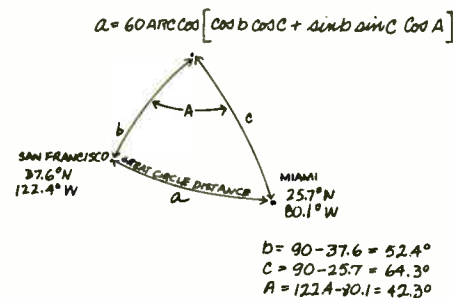 a = 60 ARC COS [cos b cos C + sin b sin C COS A]
A
b
c
SAN FRANCISCO
37.6°N
122.4° W
GREAT CIRCLE DISTANCE
a
MIAMI
25.7°N
80.1° W
b = 90-37.6 = 52.4°
C = 90-25.7 = 64.3°
A = 122.4-80.1 = 42.3°